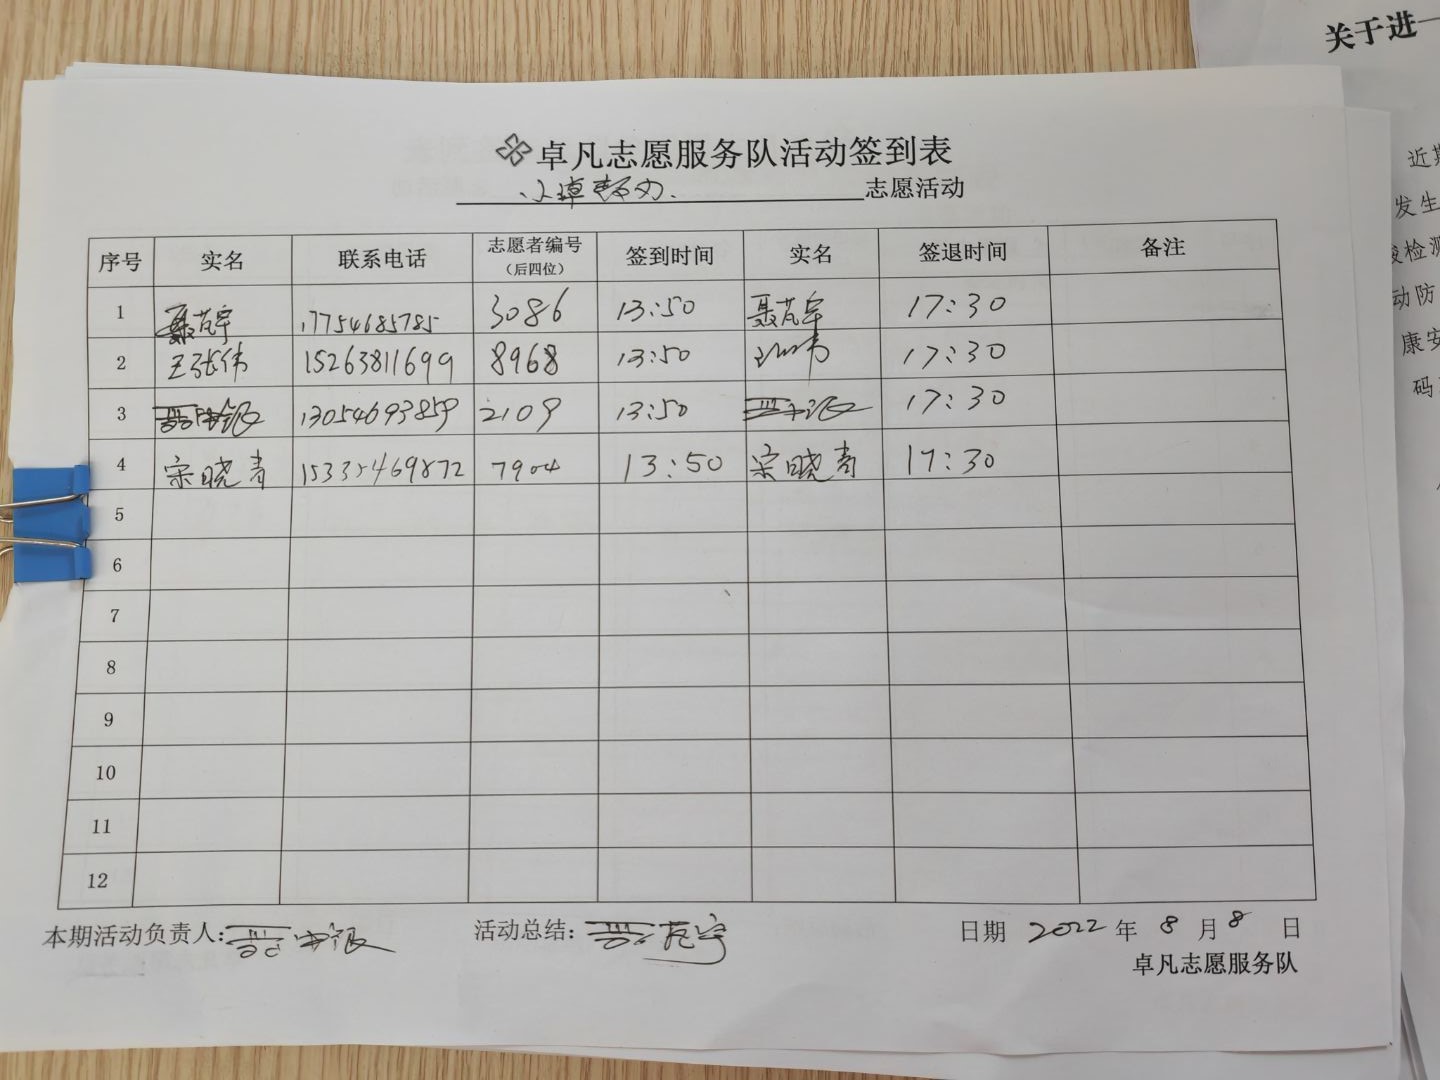 卓凡志愿服务队活动签到表
志愿活动
序号 实名 联系电话 志愿者编号（后四位） 签到时间 实名 签退时间 备注
1 聂芃宇 17754685785 3086 13:50 聂芃宇 17:30
2 王张伟 15263811699 8968 13:50 17:30
3 13054693859 2109 13:50 17:30
4 宋晓青 15335469872 7904 13:50 宋晓青 17:30
5
6
7
8
9
10
11
12
本期活动负责人: 活动总结: 日期 2022 年 8 月 8 日
卓凡志愿服务队
关于进一
近期
发生
酸检测
动防
康安
码